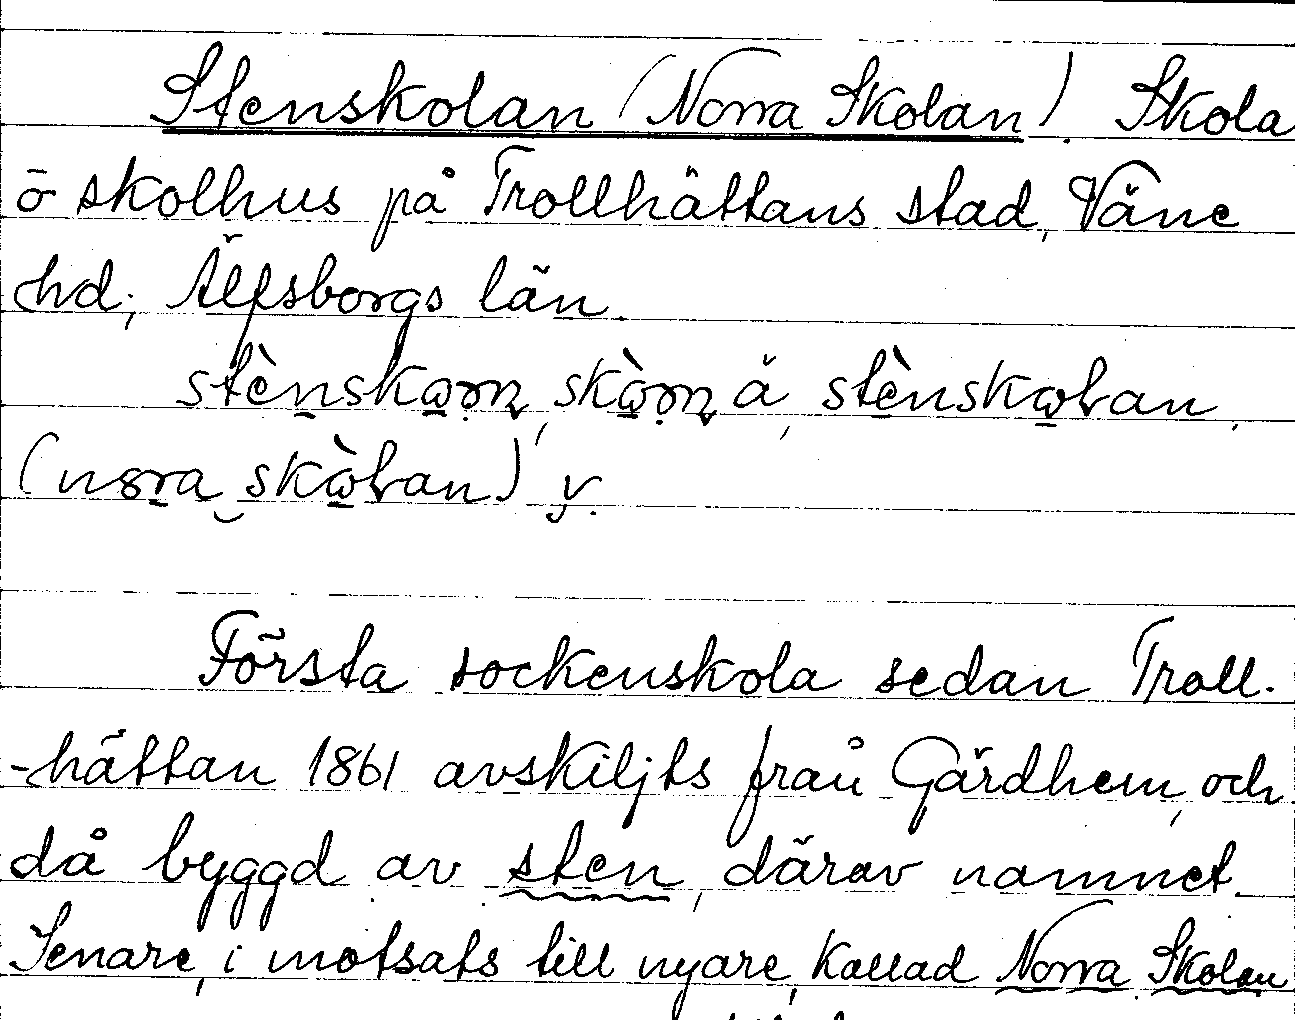 Stenskolan (Norra Skolan). Skola
o skolhus på Trollhättans stad, Väne
hd; Älfsborgs län.
å
Första sockenskola sedan Troll-
-hättan 1861 avskiljts från Gärdhem, och
då byggd av sten, därav namnet.
Senare, i motsats till nyare, kallad Norra Skolan